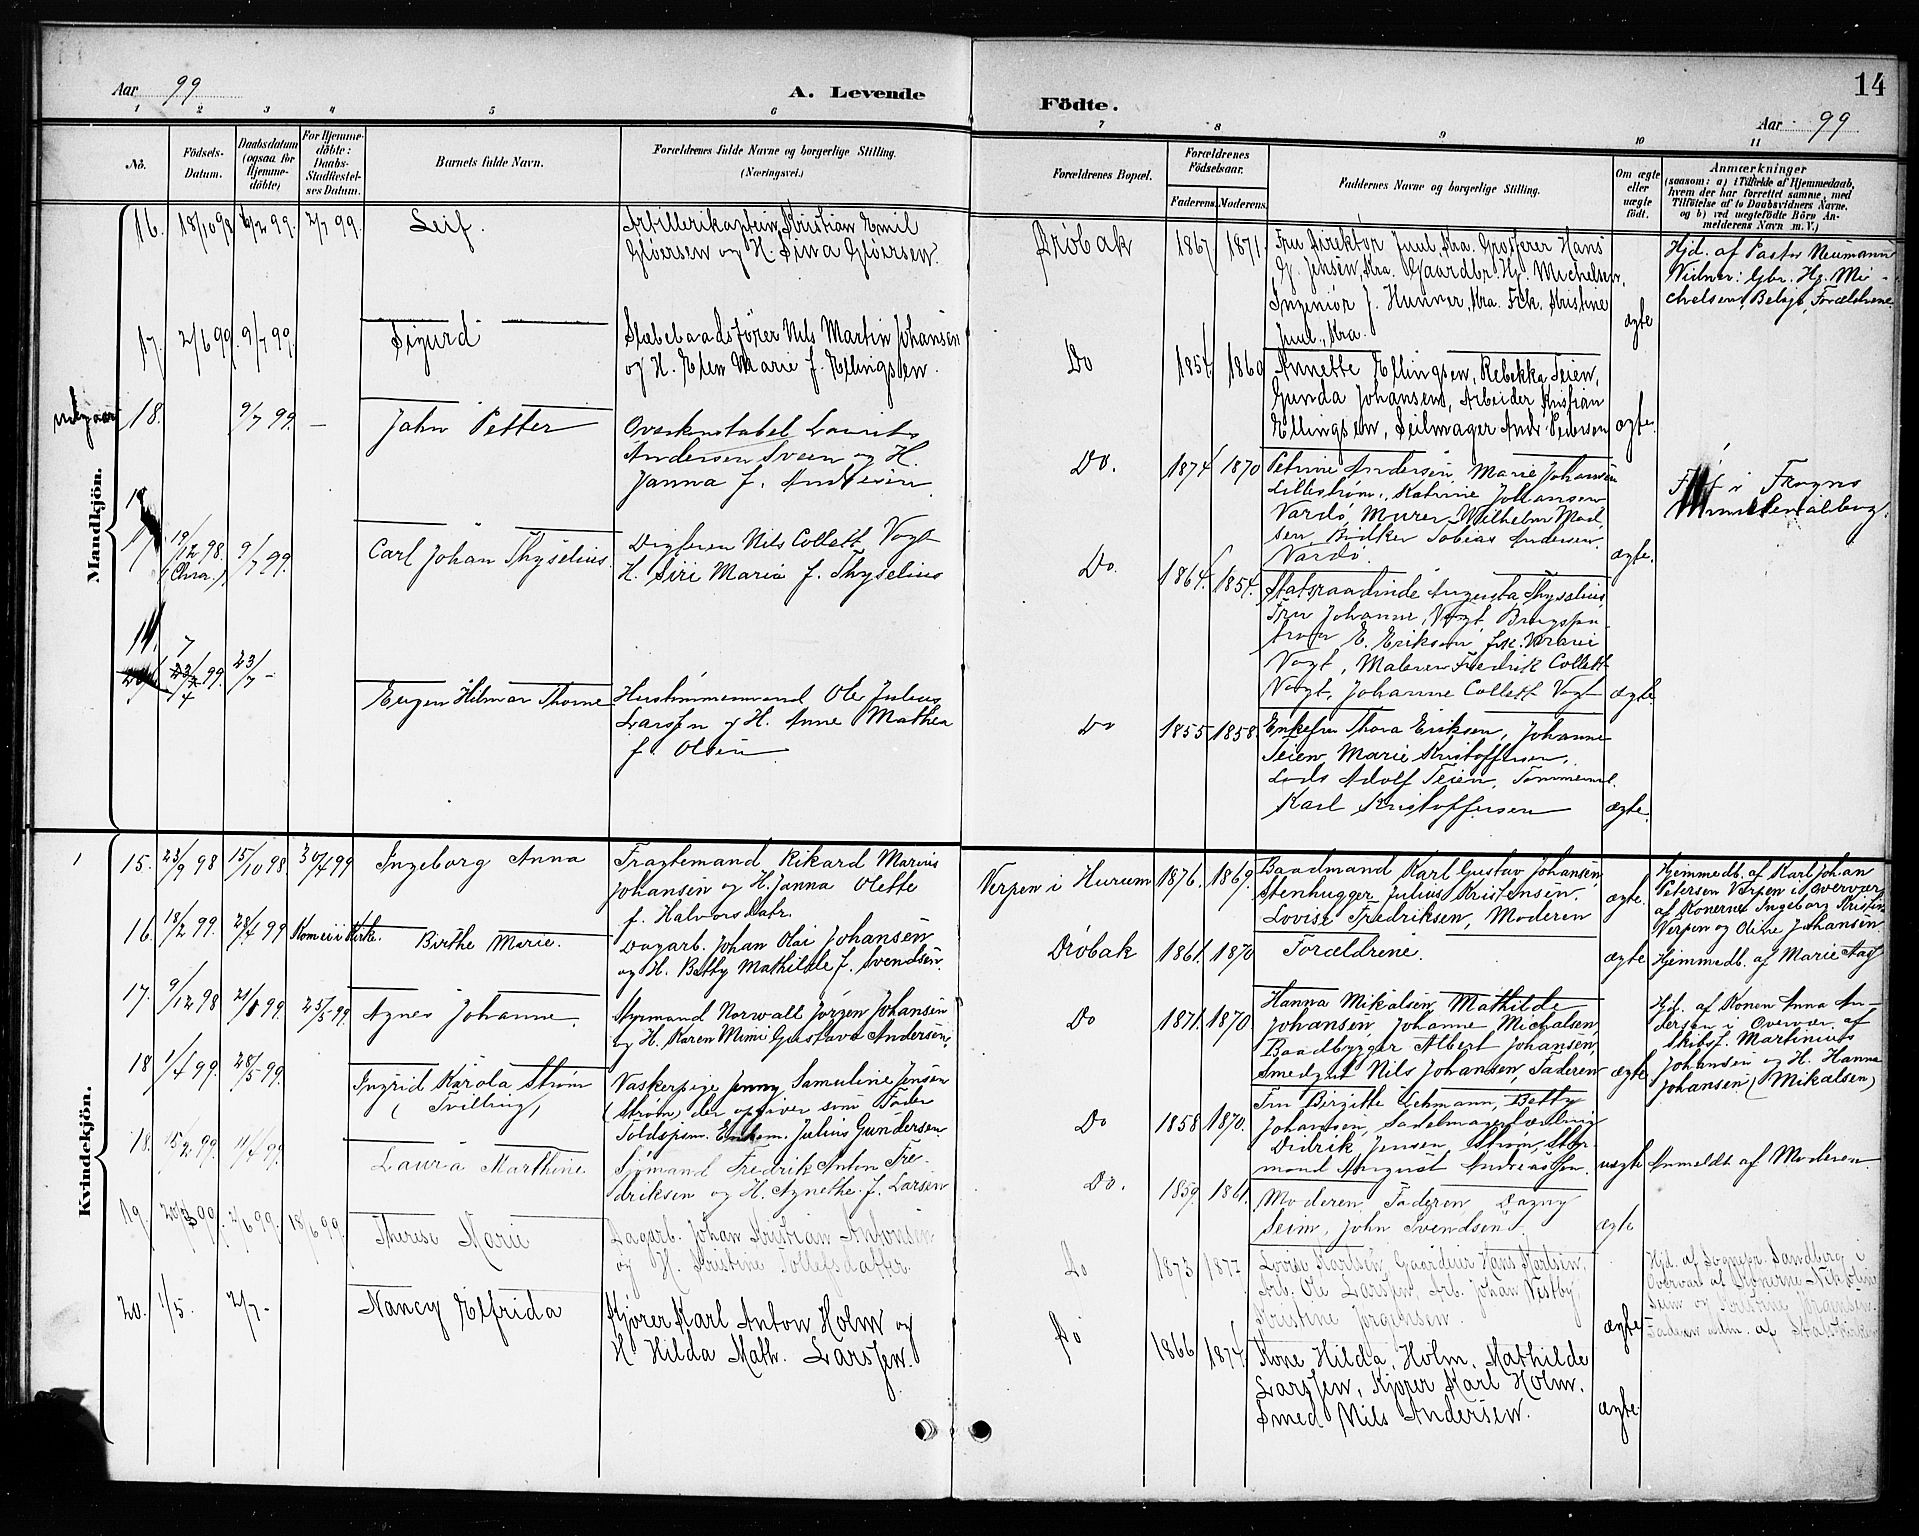 Aar 99
A. Levende
Födte.
14
Aar 99
1 2 3 4 5 6 7 8 9 10 11
No.
Födsels-
Datum.
Daabsdatum
(ogsaa for
Hjemme-
döbte)
For Hjemme-
döbte:
Daabs-
Stadfæstel-
ses Datum.
Barnets fulde Navn.
Forældrenes fulde Navne og borgerlige Stilling.
(Næringsvei.)
Forældrenes Bopæl.
Forældrenes
Födselsaar.
Faderens.
Moderens.
Faddernes Navne og borgerlige Stilling.
Om ægte
eller
uægte
födt.
Anmærkninger
(saasom: a) i Tilfælde af Hjemmedaab,
hvem der har forrettet samme, med
Tilföielse af to Daabsvidners Navne.
og b) ved uægtefödte Börn An-
melderens Navn m. V.)
Mandkjön.
16. 18/10 98 2/7 99. Leif.
Artillerikaptein Kristian Emil
Gløersen og H. Sina Gløersen.
Drøbak 1867 1871.
Fru Direktør Juul, Kra. Grosserer Hans
G. Jensen, Kra. Gaardbr. Hj. Michelsen,
Ingeniør J. Hunner, Kra. Frk. Kristine
Juul, Kra.
ægte
Hjd. af Pastor Neumann
Vidner: Gbr. Hj. Mi-
chelsen, Forældrene.
17. 2/6 99. 9/7 99. Sigurd
Slæbebaadsfører Nils Martin Johansen
og H. Elen Marie f. Ellingsen.
Do 1854 1860
Annette Ellingsen, Rebekka Teien,
Gunda Johansen, Arbeider Kristian
Ellingsen, Seilmager Andr. Pedersen
ægte.
18. 9/7 99. — John Petter
Overkonstabel Laurits
Andersen Sveen og H.
Janna f. Andersen.
Do. 1874 1870
Petrine Andersen, Marie Johansen
Lillestrøm, Katrine Johansen
Vardø, Murer Wilhelm Mad-
sen, Bødker Tobias Andersen
Vardø.
ægte.
19/12 98. (Chra.) 9/7 99. Carl Johan Thyselius.
Nils Collett Vogt
H. Siri Maria f. Thyselius
Do. 1864. 1854.
Statsraadinde Augusta Thyselius,
Fru Johanne Vogt,
E. Eriksen, Frk. Marie
Vogt, Maleren Fredrik Collett
Vogt, Johanne Collett Vogt
ægte.
23/7 – Eugen Hilmar Thorne
Ole Julius
Larssen og H. Anne Mathea
f. Olsen
Do 1855 1858.
Enkefru Thora Eriksen, Johanne
Teien, Marie Kristoffersen,
Lods Adolf Teien, Tømmerm.
Karl Kristoffersen
ægte.
Kvindekjön.
15. 23/9 98 15/10 98. 30/4 99 Ingeborg Anna
Fragtemand Rikard Marius
Johansen og H. Janna Olette
f. Halvorsdatr.
Verpen i Hurum 1876. 1869.
Baadmand Karl Gustav Johansen,
Stenhugger Julius Kristensen.
Lovise Fredriksen, Moderen
ægte.
Hjemmedb. af Karl Johan
Petersen Verpen i Overvær
af Konerne Ingeborg Kristin
Verpen og Oline Johansen.
16. 18/2 99. 28/4 99 Kom ei i Kirke. Birthe Marie.
Dagarb. Johan Olai Johansen
og H. Betty Mathilde f. Svendsen.
Drøbak 1861. 1870
Forældrene.
ægte
Hjemmedb. af Marie Aas
17. 9/12 98 25/5 99. Agnes Johanne.
Styrmand Norwall Jørgen Johansen
og H. Karen Mimi Gustava Andersen.
Do 1871. 1870
Hanna Mikalsen, Mathilde
Johansen, Johanne Michalsen,
Baadbygger Albert Johansen,
Smedgut Nils Johansen, Faderen
ægte
Hjd. af Konen Anna An-
dersen i Overvær af
Skibsf. Martinius
Johansen og H. Hanna
Johansen (Mikalsen)
18 1/4 99. 28/5 99. Ingrid Karola Strøm
(Tvilling)
Vaskerpige Jenny Samuline Jensen
(Strøm) der opgiver som Fader
Julius Gundersen.
Do 1858 1870.
Fru Bergitte Lehmann, Betty
Johansen, Sadelmagerlærling
Didrik Jensen Strøm,
August Andreassen.
uægte
Anmeldt af Moderen.
18. 15/2 99. 11/4 99. Laura Marthine.
Sjømand Fredrik Anton Fre-
driksen og H. Agnethe f. Larsen
Do. 1859. 1861.
Moderen, Faderen, Dagny
Seim, John Svendsen.
ægte
19. 2/6 99. 18/6 99. Therese Marie
Dagarb. Johan Kristian Antonsen
og H. Kristine Tollefsdatter.
Do 1873 1877
Lovise Karlsen, Gaardeier Hans Karlsen,
Arb. Ole Larsen, Arb. Johan Vestby,
Kristine Jørgensen.
ægte
Hjd. af Sognepr. Sandberg i
Overvær af Konerne Nikoline
Seim og Kristine Jørgensen.
Faderen udm. af Statskirken
20. 1/5. 2/7– Nancy Elfrida
Kjører Karl Anton Holm og
H. Hilda Math. Larssen.
Do 1866 1874
Kone Hilda Holm, Mathilde
Larssen, Kjører Karl Holm,
Smed Nils Andersen.
ægte.